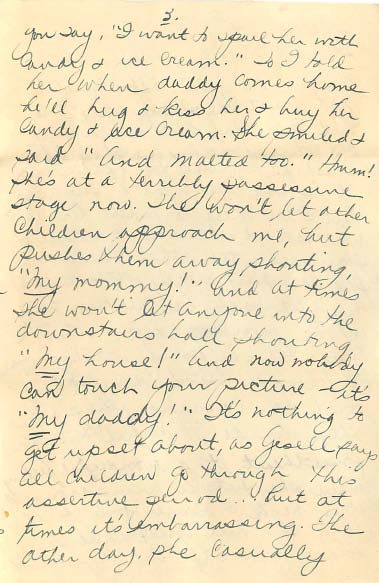 3.
you say, "I want to spoil her with
Candy & ice cream." So I told
her when daddy comes home
he'll hug & kiss her & buy her
Candy & ice cream. She smiled &
said "And malted too." Hmm!
She's at a terribly possessive
stage now. She won't let other
children approach me, but
pushes them away shouting,
"My mommy!" and at times
she won't let anyone into the
downstairs hall shouting
"My house!" And now nobody
can touch your picture - it's
"My daddy!" It's nothing to
get upset about, as Gesell says
all children go through this
assertive period... but at
times it's embarrassing. The
other day, she casually